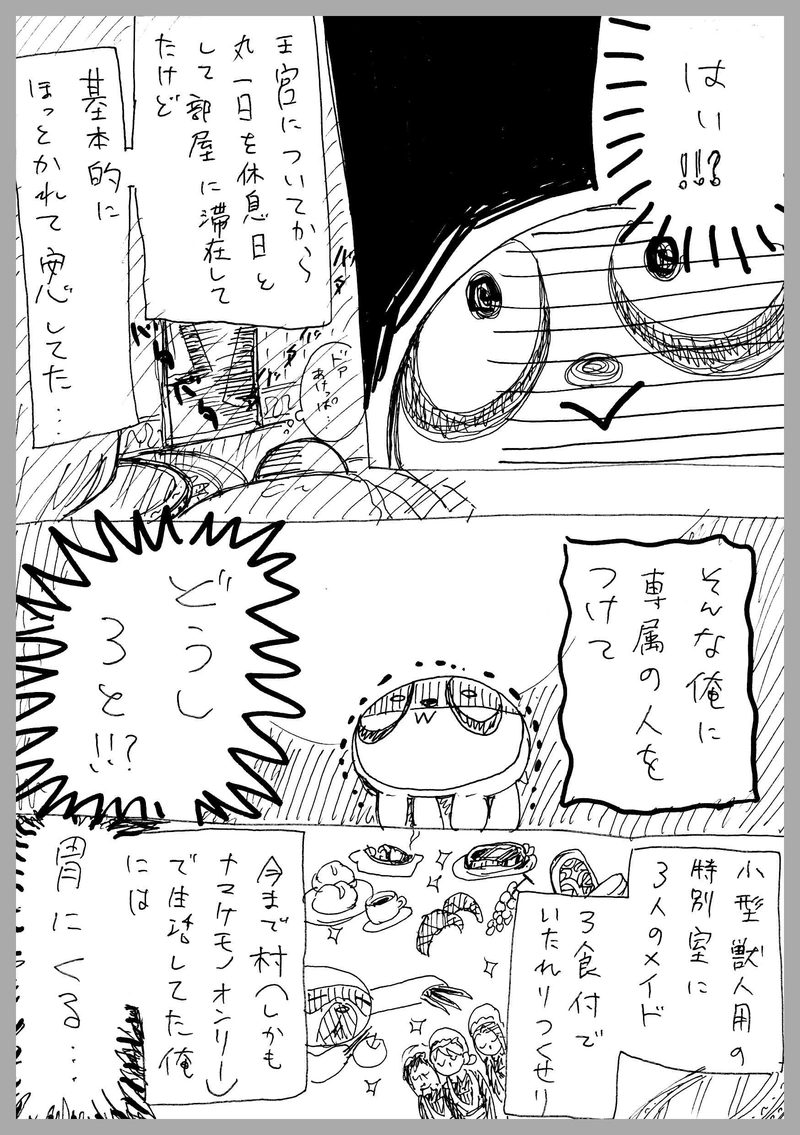 はい!!?
王宮についてから
丸一日を休息日と
して部屋に滞在して
たけど
基本的に
ほっとかれて安心してた…
ドア
あけっぱ…
バ
タ
バ
タ
そんな俺に
専属の人を
つけて
どうし
ろと!!?
小型獣人用の
特別室に
3人のメイド
3食付で
いたれりつくせり
今まで村(しかも
ナマケモノオンリー)
で生活してた俺
には
胃にくる…